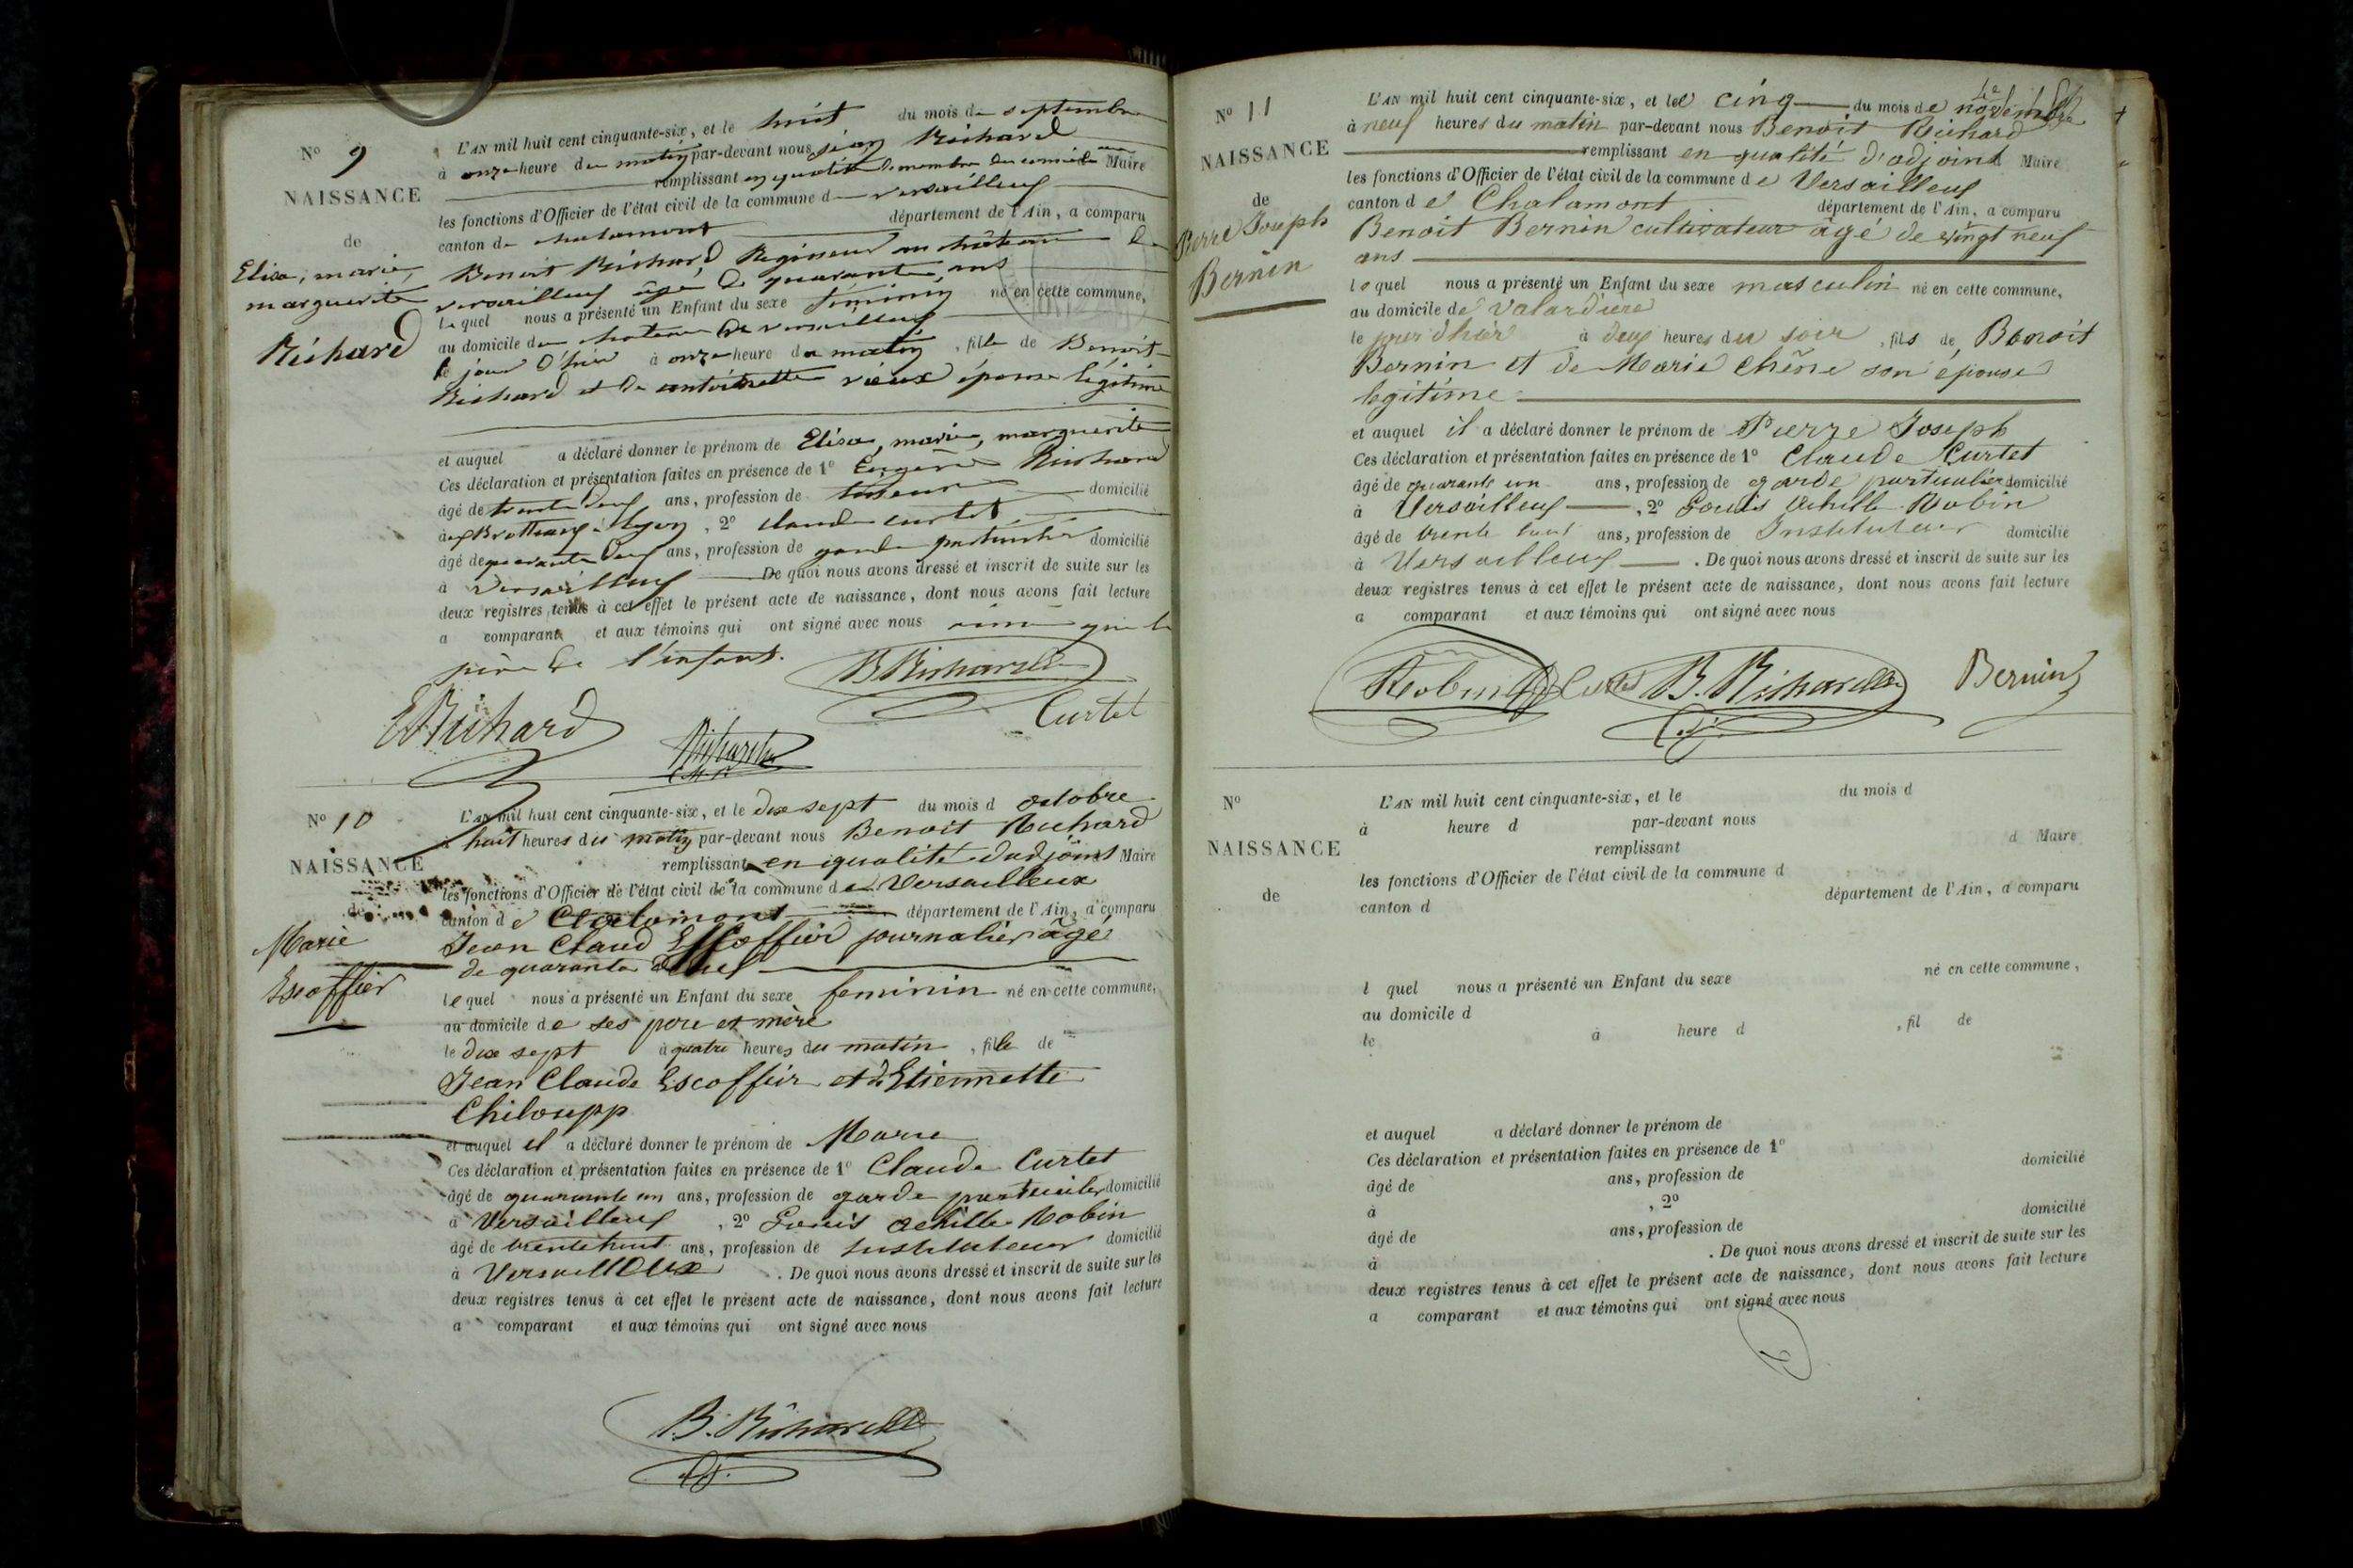 N° 9
NAISSANCE
de
Elisa, marie,
marguerite
Richard
L'AN mil huit cent cinquante-six, et le huit du mois de septembre
à onze heure du matin par-devant nous jean Richard
remplissant en qualité de membre du conseil Maire
les fonctions d'Officier de l'état civil de la commune d versailleux
canton de chalamont département de l'Ain, a comparu
Benoit Richard Régisseur au château de
versailleux âgé de quarante ans
lequel nous a présenté un Enfant du sexe féminin né en cette commune,
au domicile du chateau de versailleux
le jour d'hier à onze heure du matin, fille de Benoit
Richard et de antoinette vieux épouse légitime
et auquel a déclaré donner le prénom de Elisa, marie, marguerite
Ces déclaration et présentation faites en présence de 1° Eugène Richard
âgé de trente deux ans, profession de domicilié
aux Brotteaux Lyon, 2° claude curtet
âgé de quarante deux ans, profession de garde particulier domicilié
à versailleux De quoi nous avons dressé et inscrit de suite sur les
deux registres tenus à cet effet le présent acte de naissance, dont nous avons fait lecture
a comparant et aux témoins qui ont signé avec nous ainsi que le
père de l'enfant.
B Richard
E Richard
Curtet
Richard
N° 10
NAISSANCE
de
Marie
Escoffier
L'AN mil huit cent cinquante-six, et le dix sept du mois d octobre
à huit heures du matin par-devant nous Benoit Richard
remplissant en qualité d'adjoint Maire
les fonctions d'Officier de l'état civil de la commune de Versailleux
canton de Chalamont département de l'Ain, a comparu
Jean Claud Escoffier journalier âgé
de quarante deux
lequel nous a présenté un Enfant du sexe feminin né en cette commune,
au domicile de ses pere et mère
le dix sept à quatre heures du matin, fille de
Jean Claude Escoffier et d'Etiennette
Chiloupp
et auquel il a déclaré donner le prénom de Marie
Ces déclaration et présentation faites en présence de 1° Claude Curtet
âgé de quarante un ans, profession de garde particulier domicilié
à Versailleux, 2° Louis achille Robin
âgé de trente huit ans, profession de Instituteur domicilié
à Versailleux. De quoi nous avons dressé et inscrit de suite sur les
deux registres tenus à cet effet le présent acte de naissance, dont nous avons fait lecture
a comparant et aux témoins qui ont signé avec nous
B. Richard
N° 11
NAISSANCE
de
Pierre Joseph
Bernin
L'AN mil huit cent cinquante-six, et le cinq du mois de novembre
à neuf heures du matin par-devant nous Benoit Richard
remplissant en qualité d'adjoint Maire
les fonctions d'Officier de l'état civil de la commune de Versailleux
canton de Chalamont département de l'Ain, a comparu
Benoit Bernin cultivateur âgé de vingt neuf
ans
lequel nous a présenté un Enfant du sexe masculin né en cette commune,
au domicile de Valardière
le jour d'hier à deux heures du soir, fils de Benoit
Bernin et de Marie Chêne son épouse
légitime
et auquel il a déclaré donner le prénom de Pierre Joseph
Ces déclaration et présentation faites en présence de 1° Claude Curtet
âgé de quarante un ans, profession de garde particulier domicilié
à Versailleux, 2° Louis Achille Robin
âgé de trente huit ans, profession de Instituteur domicilié
à Versailleux. De quoi nous avons dressé et inscrit de suite sur les
deux registres tenus à cet effet le présent acte de naissance, dont nous avons fait lecture
a comparant et aux témoins qui ont signé avec nous
Robin Curtet B. Richard Bernin
N°
NAISSANCE
de
L'AN mil huit cent cinquante-six, et le du mois d
à heure d par-devant nous
remplissant d Maire
les fonctions d'Officier de l'état civil de la commune d
canton d département de l'Ain, a comparu
l quel nous a présenté un Enfant du sexe né en cette commune,
au domicile d
le à heure d, fil de
et auquel a déclaré donner le prénom de
Ces déclaration et présentation faites en présence de 1°
âgé de ans, profession de domicilié
à, 2°
âgé de ans, profession de domicilié
à. De quoi nous avons dressé et inscrit de suite sur les
deux registres tenus à cet effet le présent acte de naissance, dont nous avons fait lecture
a comparant et aux témoins qui ont signé avec nous